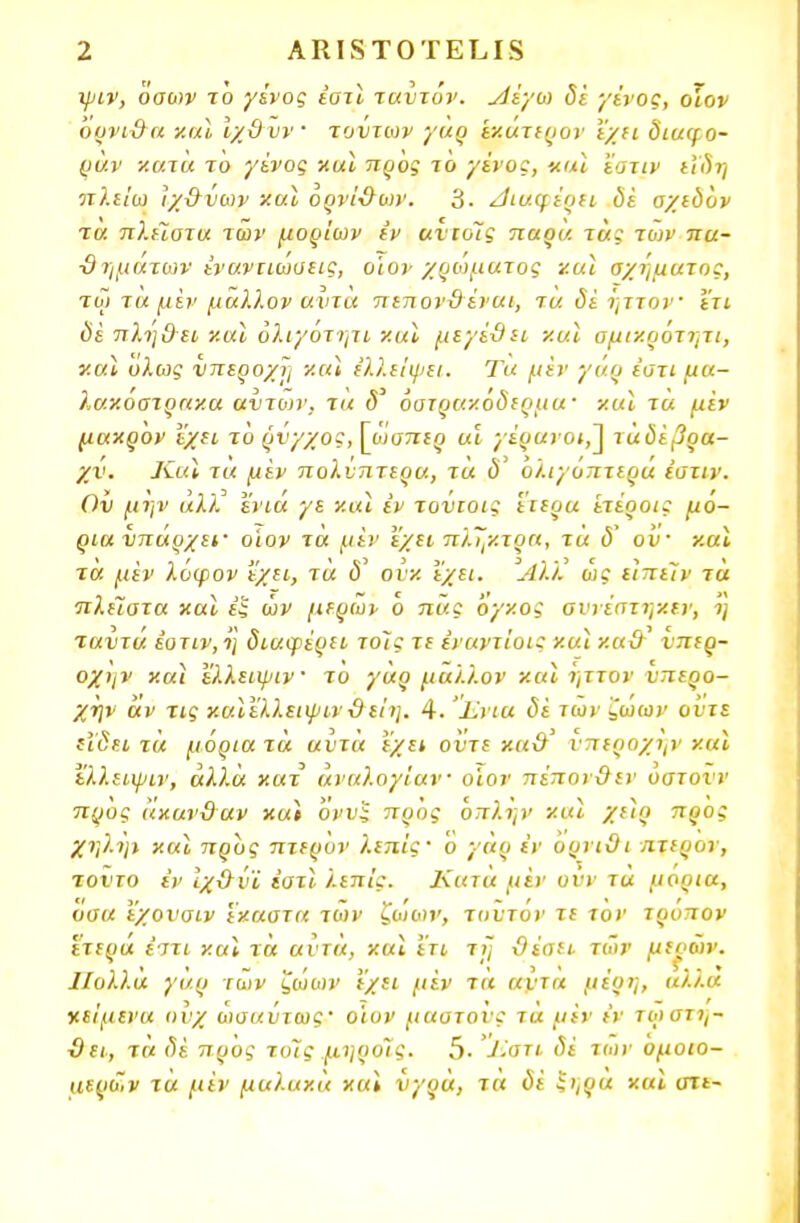 2 ARISTOTELIS
ψιν, ὅσων τὸ γένος ἐστὶ ταὐτόν. Λέγω δὲ γένος, οἷον
ὄρνιθα καὶ ἰχθύν· τούτων γὰρ ἑκάτερον ἔχει διαφο-
ρὰν κατὰ τὸ γένος καὶ πρὸς τὸ γένος, καὶ ἔστιν εἴδη
πλείω ἰχθύων καὶ ὀρνίθων. 3. Διαφέρει δὲ σχεδὸν
τὰ πλεῖστα τῶν μορίων ἐν αὐτοῖς παρὰ τὰς τῶν πα-
θημάτων ἐναντιώσεις, οἷον χρώματος καὶ σχήματος,
τῷ τὰ μὲν μᾶλλον αὐτὰ πεπονθέναι, τὰ δὲ ἧττον· ἔτι
δὲ πλήθει καὶ ὀλιγότητι καὶ μεγέθει καὶ σμικρότητι,
καὶ ὅλως ὑπεροχῇ καὶ ἐλλείψει. Τὰ μὲν γάρ ἐστι μα-
λακόστρακα αὐτῶν, τὰ δ᾽ ὀστρακόδερμα· καὶ τὰ μὲν
μακρὸν ἔχει τὸ ῥύγχος, [ὥσπερ αἱ γέρανοι,] τὰδὲβρα-
χύ. Καὶ τὰ μὲν πολύπτερα, τὰ δ᾽ ὀλιγόπτερά ἐστιν.
Οὐ μὴν ἀλλ᾽ ἔνιά γε καὶ ἐν τούτοις ἕτερα ἑτέροις μό-
ρια ὑπάρχει· οἷον τὰ μὲν ἔχει πλῆκτρα, τὰ δ᾽ οὔ· καὶ
τὰ μὲν λόφον ἔχει, τὰ δ᾽ οὐκ ἔχει. Ἀλλ᾽ ὡς εἰπεῖν τὰ
πλεῖστα καὶ ἐξ ὧν μερῶν ὁ πᾶς ὄγκος συνέστηκεν, ἢ
ταὐτά ἐστιν, ἢ διαφέρει τοῖς τε ἐναντίοις καὶ καθ᾽ ὑπερ-
οχὴν καὶ ἔλλειψιν· τὸ γὰρ μᾶλλον καὶ ἧττον ὑπερο-
χὴν ἄν τις καὶἔλλειψιν θείη. 4. Ἔνια δὲ τῶν ζώων οὔτε
εἴδει τὰ μόρια τὰ αὐτὰ ἔχει οὔτε καθ᾽ ὑπεροχὴν καὶ
ἔλλειψιν, ἀλλὰ κατ᾽ ἀναλογίαν· οἷον πέπονθεν ὀστοῦν
πρὸς ἄκανθαν καὶ ὄνυξ πρὸς ὁπλὴν καὶ χεὶρ πρὸς
χηλὴν καὶ πρὸς πτερὸν λεπίς· ὃ γὰρ ἐν ὄρνιθι πτερόν,
τοῦτο ἐν ἰχθύϊ ἐστὶ λεπίς. Κατὰ μὲν οὖν τὰ μόρια,
ὅσα ἔχουσιν ἕκαστα τῶν ζώων, τοῦτόν τε τὸν τρόπον
ἕτερά ἐστι καὶ τὰ αὐτά, καὶ ἔτι τῇ θέσει τῶν μερῶν.
Πολλὰ γὰρ τῶν ζώων ἔχει μὲν τὰ αὐτὰ μέρη, ἀλλὰ
κείμενα οὐχ ὡσαύτως· οἷον μαστοὺς τὰ μὲν ἐν τῷ στή-
θει, τὰ δὲ πρὸς τοῖς μηροῖς. 5. Ἔστι δὲ τῶν ὁμοιο-
μερῶν τὰ μὲν μαλακὰ καὶ ὑγρά, τὰ δὲ ξηρὰ καὶ στε-